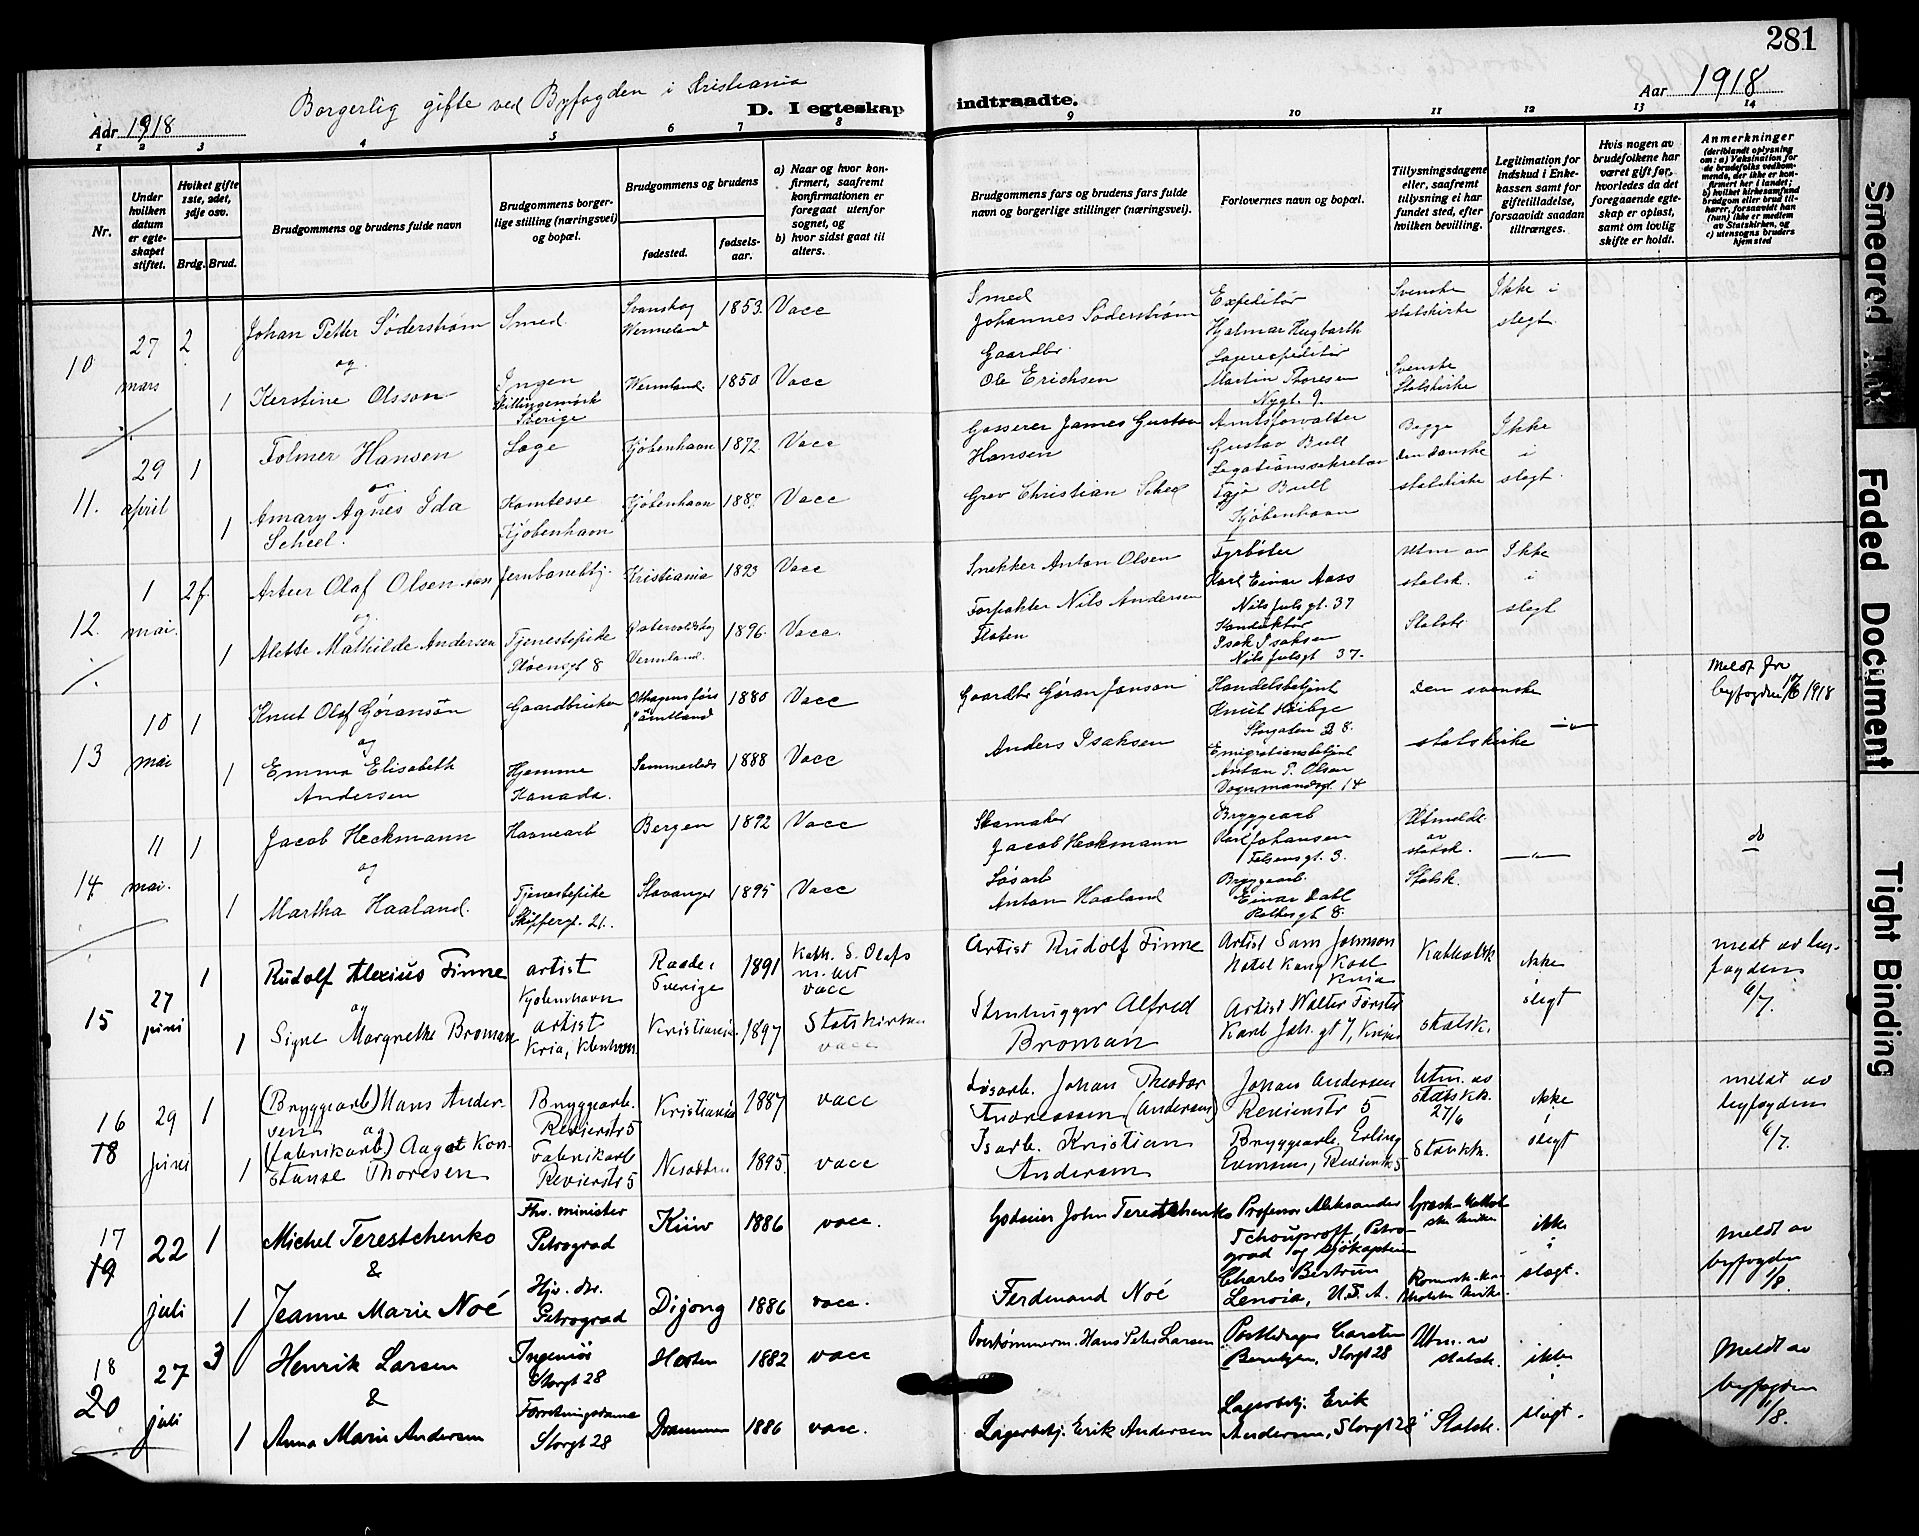 281
Borgerlig gifte ved Byfogden i Kristiania
Aar 1918
D. Iegteskap indtraadte.
Aar 1918
1 2 3 4 5 6 7 8 9 10 11 12 13 14
Nr.
Under hvilken datum er egteskapet stiftet.
Hvilket gifte 1ste, 2det, 3dje osv.
Brdg. Brud.
Brudgommens og brudens fulde navn
Brudgommens borgerlige stilling (næringsvei) og bopæl.
Brudgommens og brudens
fødested.
fødselsaar.
a) Naar og hvor konfirmert, saafremt konfirmationen er foregaat utenfor sognet, og
b) hvor sidst gaat til alters.
Brudgommens fars og brudens fars fulde navn og borgerlige stillinger (næringsvei).
Forlovernes navn og bopæl.
Tillysningsdagene eller, saafremt tillysning ei har fundet sted, efter hvilken bevilling.
Legitimation for indskud i Enkekassen samt for giftetilladelse, forsaavidt saadan tiltrænges.
Hvis nogen av brudefolkene har været gift før, hvorledes da det foregaaende egteskap er opløst, samt om lovlig skifte er holdt.
Anmerkninger
(deriblandt oplysning om: a) Vaksination for de brudefolks vedkommende, der ikke er konfirmert her i landet; b) hvilket kirkesamfund brudgom eller brud tilhører, forsaavidt han (hun) ikke er medlem av Statskirken, og c) utensogns bruders hjemsted
10 27 mars 2 Johan Petter Söderström Smed Svanskog Wermeland 1853 Vacc
Smed Johannes Söderström Expeditør Hjalmar Hugbarth Svenske statskirke Ikke i slegt
og
1 Kerstine Olsson Ingen Skillingsmark Sverige Wermland 1850 Vacc
Gaardbr. Ole Erichsen Lagerexpeditør Martin Thoresen Nygt. 9. Svenske Statskirke
11. 29 april 1 Folmer Hansen Læge Kjøbenhavn 1872 Vacc
Gasserer James Gustav Hansen Amtsforvalter Gustav Bull Begge den danske statskirke Ikke i slegt.
og
1 Amary Agnes Ida Scheel. Komtesse Kjøbenhavn Kjøbenhavn Vacc
Grev Christian Scheel Legationssekretær Bull Kjøbenhavn
12. 1 mai. 2f. Artur Olaf Olsen Jernbanebtj. Kristiania 1893 Vacc
Snekker Anton Olsen Fyrbøter Karl Einar Aass Nils Juls gt. 37 Utm av statsk. Ikke i slegt
og
1 Alette Mathilde Andersen Tjenestepike 8 Vermland. 1896 Vacc.
Forpakter Nils Andersen Floten Konduktør Isak Isaksen Nils Julsgt 37. Statsk
13 10 mai 1 Knut Olof Göransön Gaardbruker Jämtland 1880 Vacc
Gaardbr Göran Jonson Handelsbetjent Knut Storgaten 38. den svenske statskirke —"—
Meldt fra byfogden 1918
og
1 Emma Elisabeth Andersen Hjemme Kanada. 1888 Vacc
Anders Isaksen Emigrationsbetjent Anton P. Olsen Vognmandsgt. 14
14 11 mai. 1 Jacob Heckmann Havnearb Bergen 1892 Vacc
Skomaker Jacob Heckmann Bryggearb Karl Johansen 3. Utmeldt av statsk. —"— do
og
1 Martha Haaland. Tjenestepike Skippergt. 21. Stavanger 1895 Vacc
Løsarb Anton Haaland Bryggearb. Einar Dahl 8. Statsk.
15 27 juni 1 Rudolf Alexius Finne artist Kjøbenhavn Raade i Sverige 1891 Kath. S. Olafs vacc
Artist Rudolf Finne Artist Sam Johnson Hotel Kong Karl Kria Katholsk ikke i slegt
meldt av byfogden 6/7.
og
1 Signe Margrethe Broman artist Kria, Kbenhavn Kristiania 1897 Statskirken vacc
Stenhugger Alfred Broman Artist Walter Førster Karl Joh. gt 7, Kria statsk.
16 18 29 juni 1 (Bryggearb) Hans Andersen Bryggearb. Revierstr 5 Kristiania 1887 vacc
Løsarb. Johan Theodor Andreassen (Andersen) Johan Andersen Revierstr 5 Utm. av statsk. 27/6 ikke i slegt
meldt av byfogden 6/7.
og
1 (fabrikarb) Aagot Konstanse Thoresen Fabrikarb Revierstr 5 Nesodden 1895 vacc
Isarb. Kristian Andersen Bryggearb. Erling Evensen, Revierstr 5 Statsk.
17 19 22 juli 1 Michel Terestchenko Fhv. minister Petrograd Kiiw 1886 vacc.
Godseier John Terestchenko Professor Aleksander Tchouproff, Petrograd og Sjøkaptein Græsk-Katholske Kirke ikke i slegt.
Meldt av byfogden 1/8.
&
1 Jeanne Marie Noé Hjv. do. Petrograd Dijong 1886 vacc.
Ferdinand Noé Charles Bertrun Lenoia, U.S.A. Romersk-katholske Kirke
18 20 27 juli 3 Henrik Larsen Ingeniør Storgt 28 Horten 1882 vacc
Hans Peter Larsen Postbedrager Carsten Berntsen, Storgt 28 Utm. av statsk. ikke i slegt.
Meldt av byfogden 1/8.
&
1 Anna Marie Andersen Forretningsdame Storgt 28 Drammen 1886 vacc.
Lagerbetj. Erik Andersen Lagerbetj. Erik Andersen, Storgt 28 Statsk.
Smeared Ink
Faded Document
Tight Binding